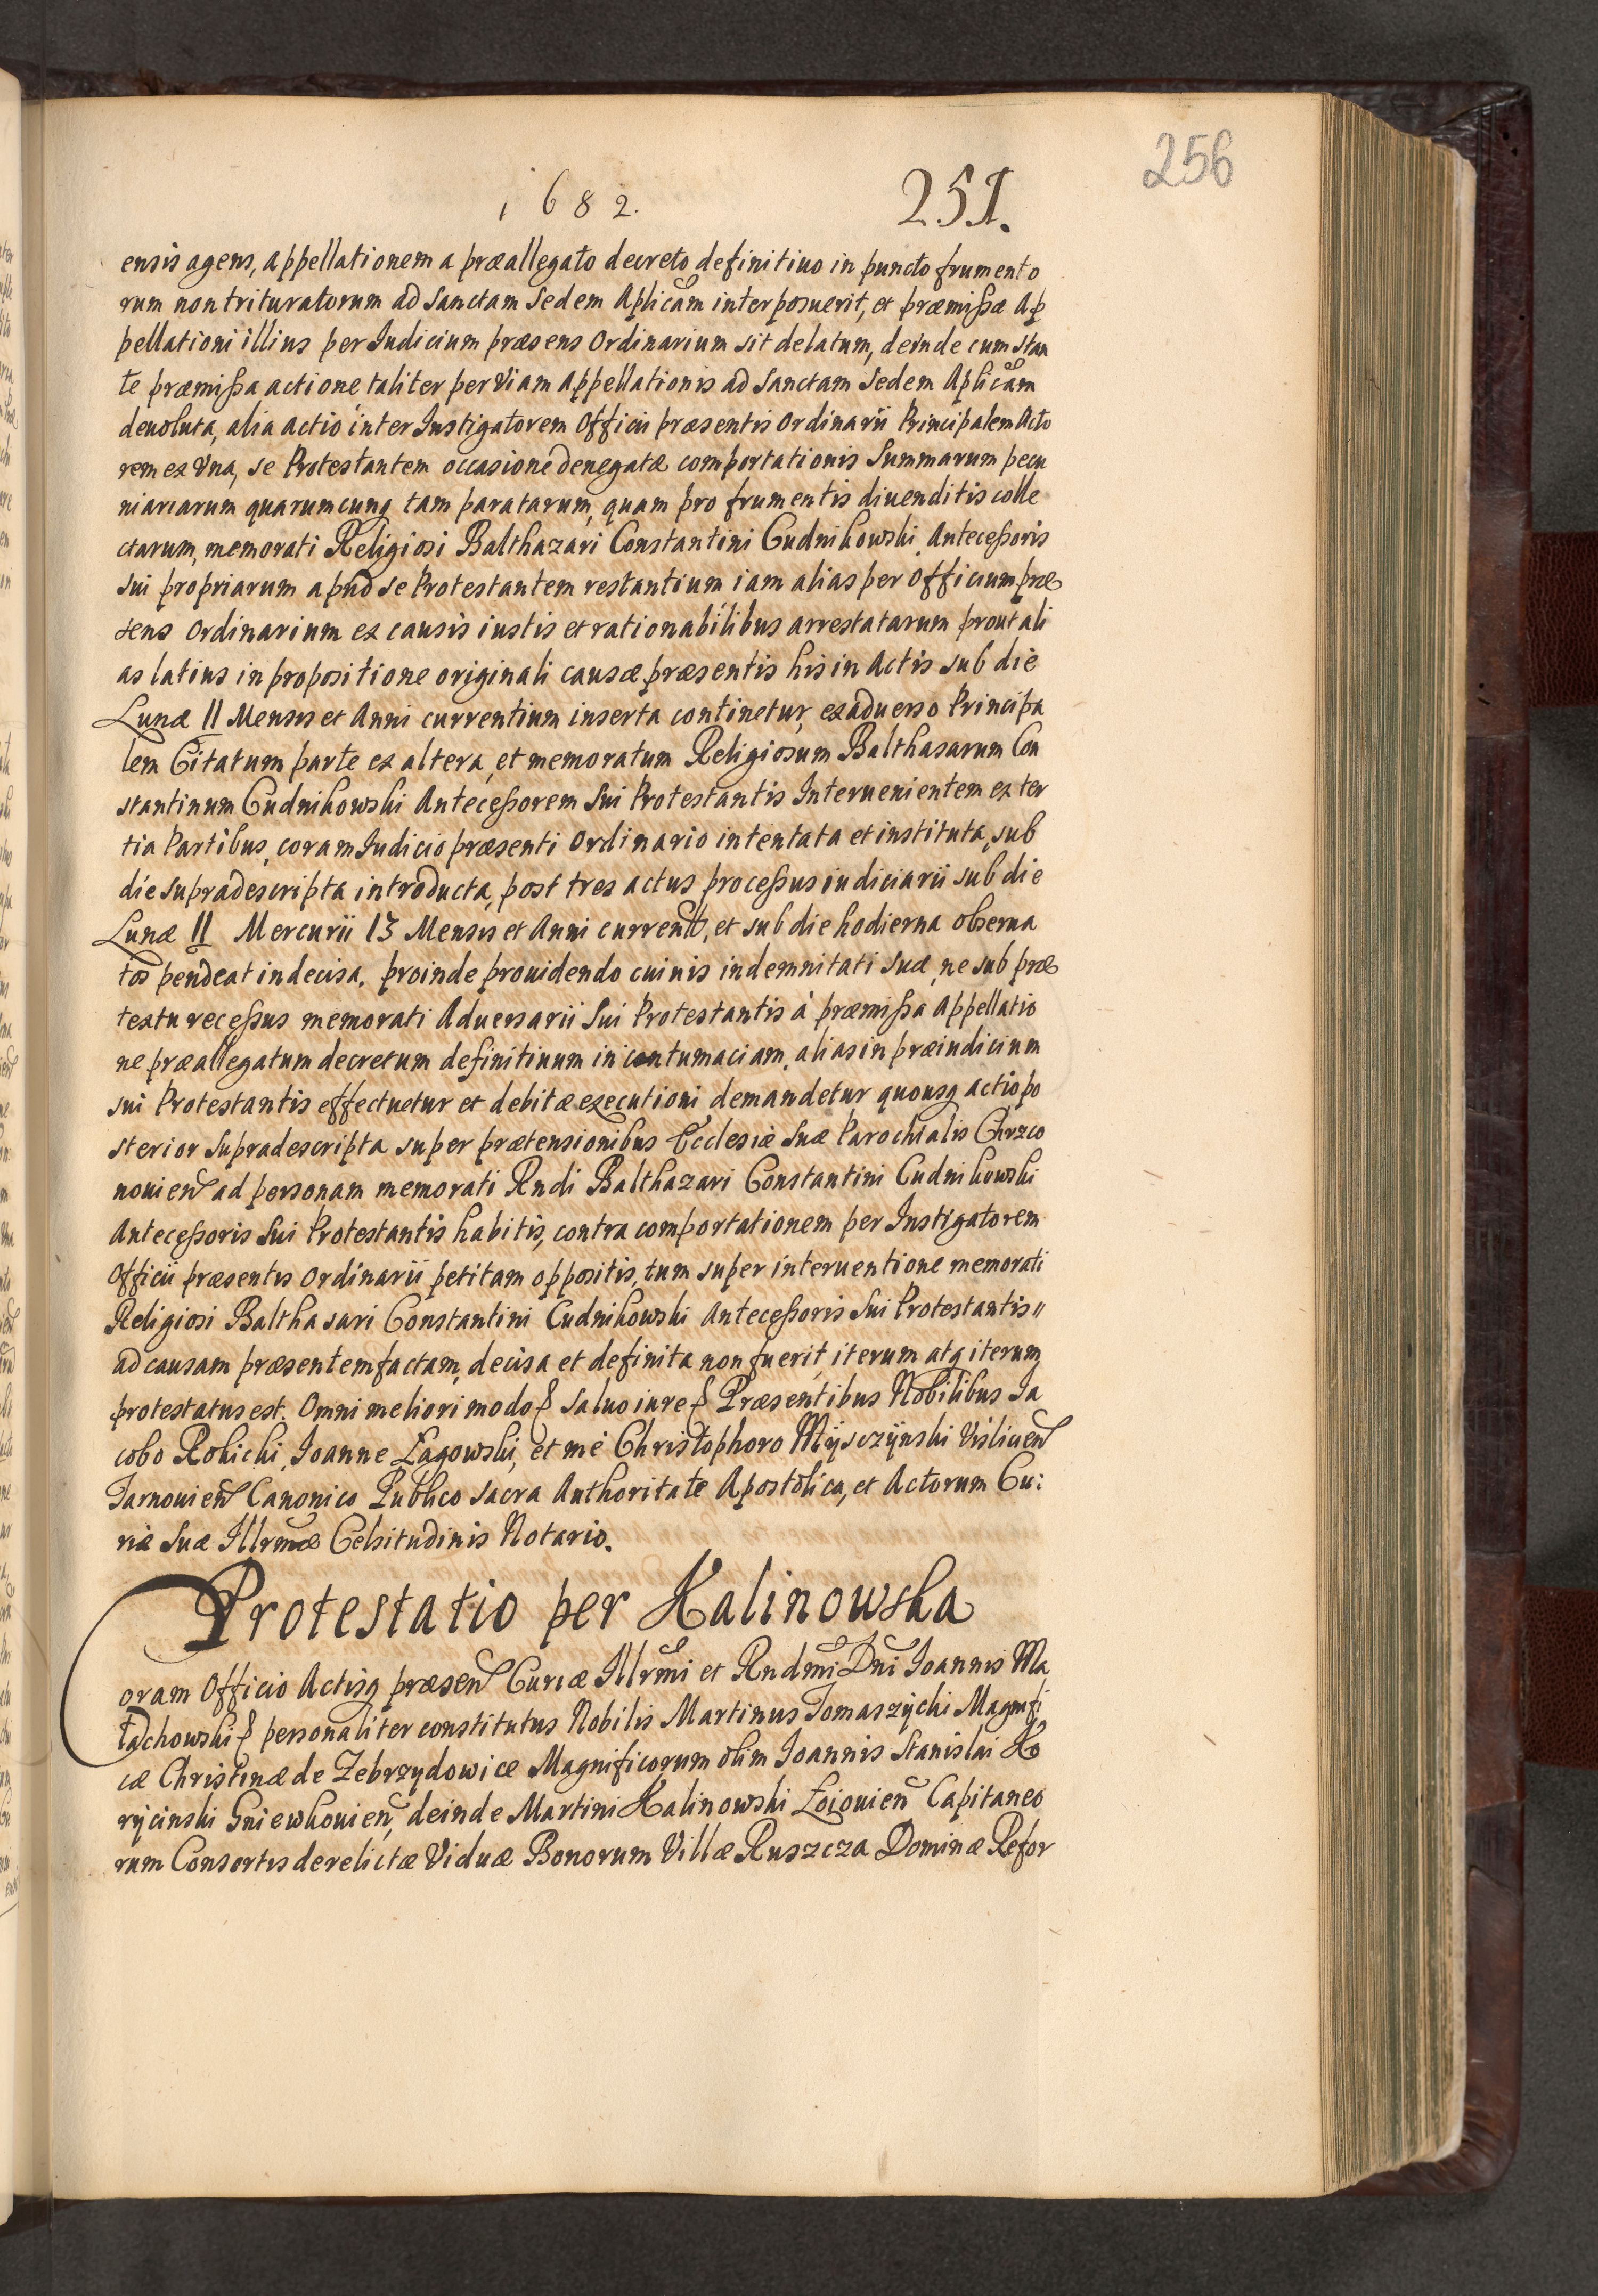 256
1682.
251.
ensis agens, appellationem a præallegato decreto definitiuo in puncto frumento
rum non trituratorum ad Sanctam Sedem Aplicam interposuerit, et præmissæ Ap
pellationi illius per Iudicium præsens Ordinarium sit delatum, deinde cum stan
te præmissa actione taliter per Viam Appellationis ad Sanctam Sedem Aplicam
deuoluta, alia actio inter Instigatorem Officii præsentis Ordinarii Principalem Acto
rem ex Vna, se Protestantem occasione denegatæ comportationis Summarum pecu
niariarum quarumcunq tam paratarum, quam pro frumentis diuenditis colle
ctarum, memorati Religiosi Balthazari Constantini Cudnikowski Antecessoris
sui propriarum apud se Protestantem restantium iam alias per Officium præ
sens Ordinarium ex causis iustis et rationabilibus arrestatarum prout ali
as latius in propositione originali causæ præsentis his in Actis sub die
Lunæ 11 Mensis et Anni currentium inserta continetur, ex aduerso Principa
lem Citatum parte ex altera, et memoratum Religiosum Balthasarum Con
stantinum Cudnikowski Antecessorem Sui Protestantis Interuenientem ex ter
tia Partibus, coram Iudicio præsenti Ordinario intentata et instituta, sub
die supradescripta introducta, post tres actus processus iudiciarii sub die
Lunæ 11 Mercurii 13 Mensis et Anni current, et sub die hodierna obserua
tos pendeat indecisa. proinde prouidendo cuiuis indemnitati suæ, ne sub præ
textu recessus memorati Aduersarii Sui Protestantis à præmissa Appellatio
ne præallegatum decretum definitiuum in contumaciam, alias in præiudicium
sui Protestantis effectuetur et debitæ executioni demandetur quousq actio po
sterior supradescripta super prætensionibus Ecclesiæ Suæ Parochialis Chrzco
nouien ad personam memorati Rndi Balthazari Constantini Cudnikowski
Antecessoris Sui Protestantis habitis, contra comportationem per Instigatorem
Officii præsentis Ordinarii petitam oppositis, tum super interuentione memorati
Religiosi Balthasari Constantini Cudnikowski Antecessoris Sui Protestantis
ad causam præsentem factam, decisa et definita non fuerit, iterum atq iterum
protestatus est. Omni meliori modo saluo iure Præsentibus Nobilibus Ia
cobo Rokicki, Ioanne Łagowski, et me Christophoro Mÿsczÿnski Visliuen
Tarnouien Canonico Publico Sacra Authoritate Apostolica, et Actorum Cu:
riæ Suæ Illrmæ Celsitudinis Notario.
Protestatio per Kalinowska
Coram Officio Actisq præsen Curiæ Illrmi et Rndmi Dni Ioannis Ma
łachowski personaliter constitutus Nobilis Martinus Tomaszÿcki Magnifi
cæ Christinæ de Zebrzydowice Magnificorum olim Ioannis Stanislai Ko
rÿcinski Gniewkouien, deinde Martini Kalinowski Łoiouien Capitaneo
rum Consortis derelictæ Viduæ Bonorum Villæ Ruszcza Dominæ Refor